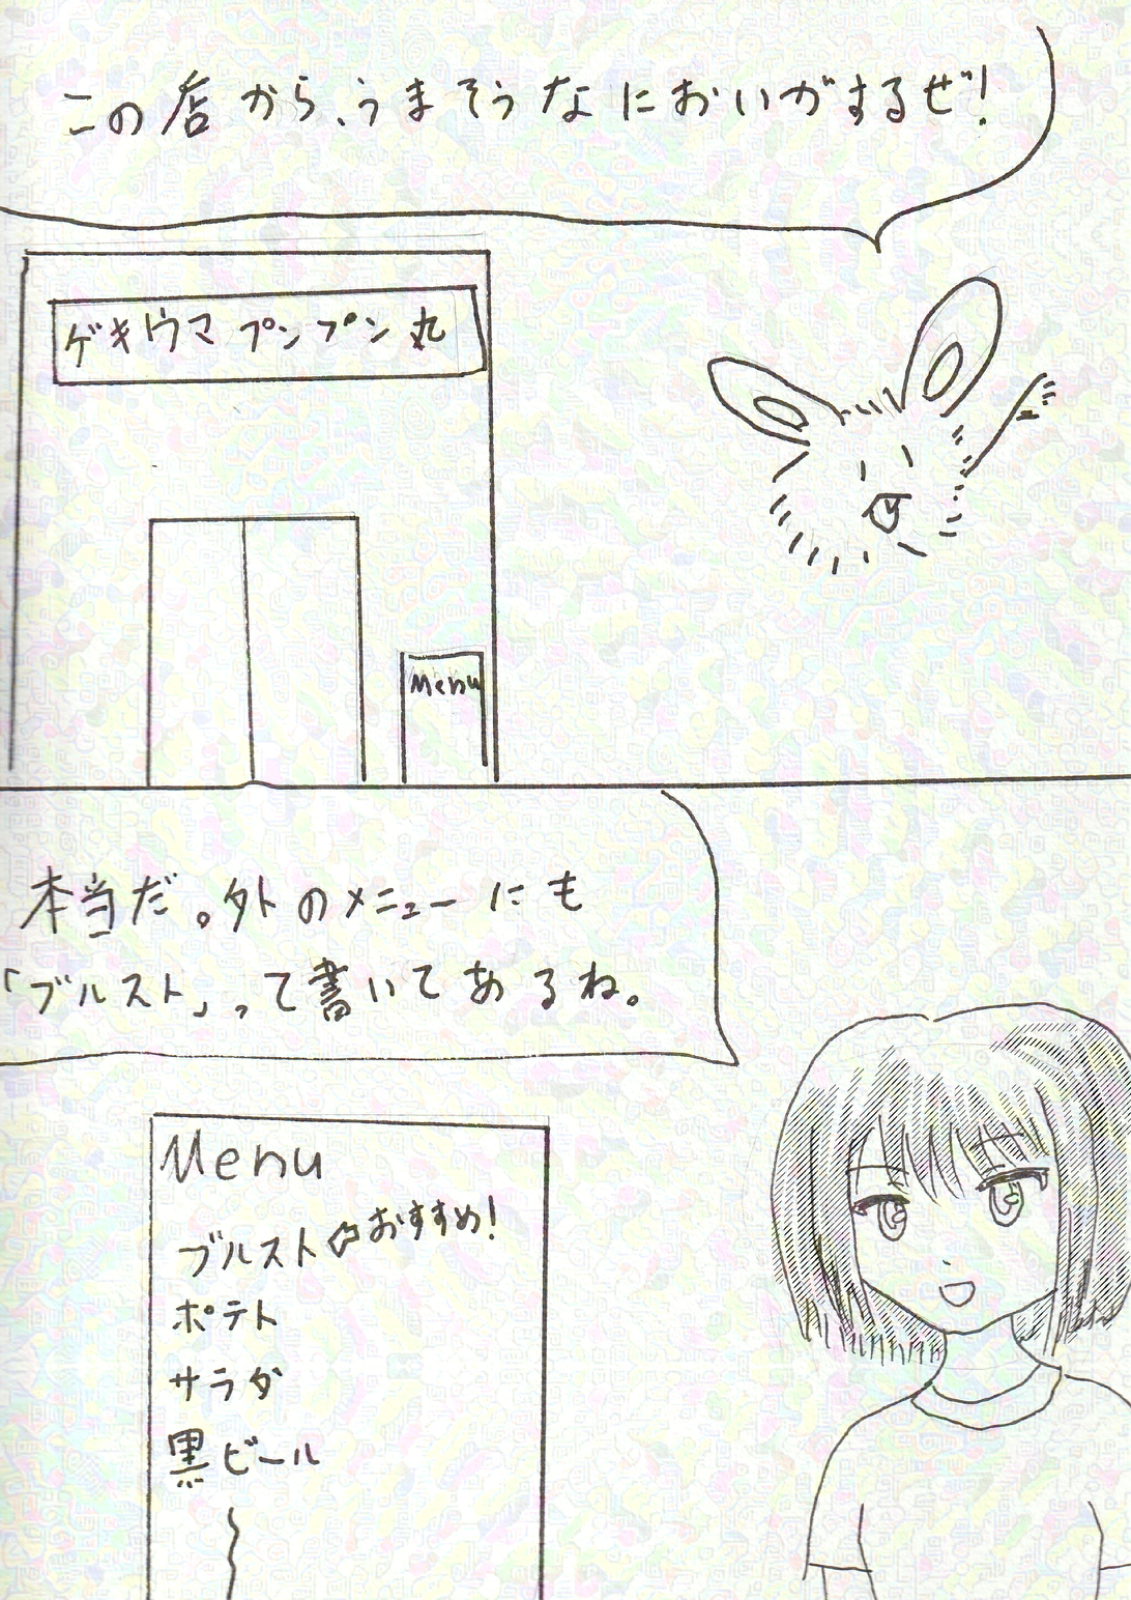 この店から、うまそうなにおいがするぜ!
ゲキウマプンプン丸
Menu
本当だ。外のメニューにも
「ブルスト」って書いてあるね。
Menu
ブルスト⇦おすすめ!
ポテト
サラダ
黒ビール